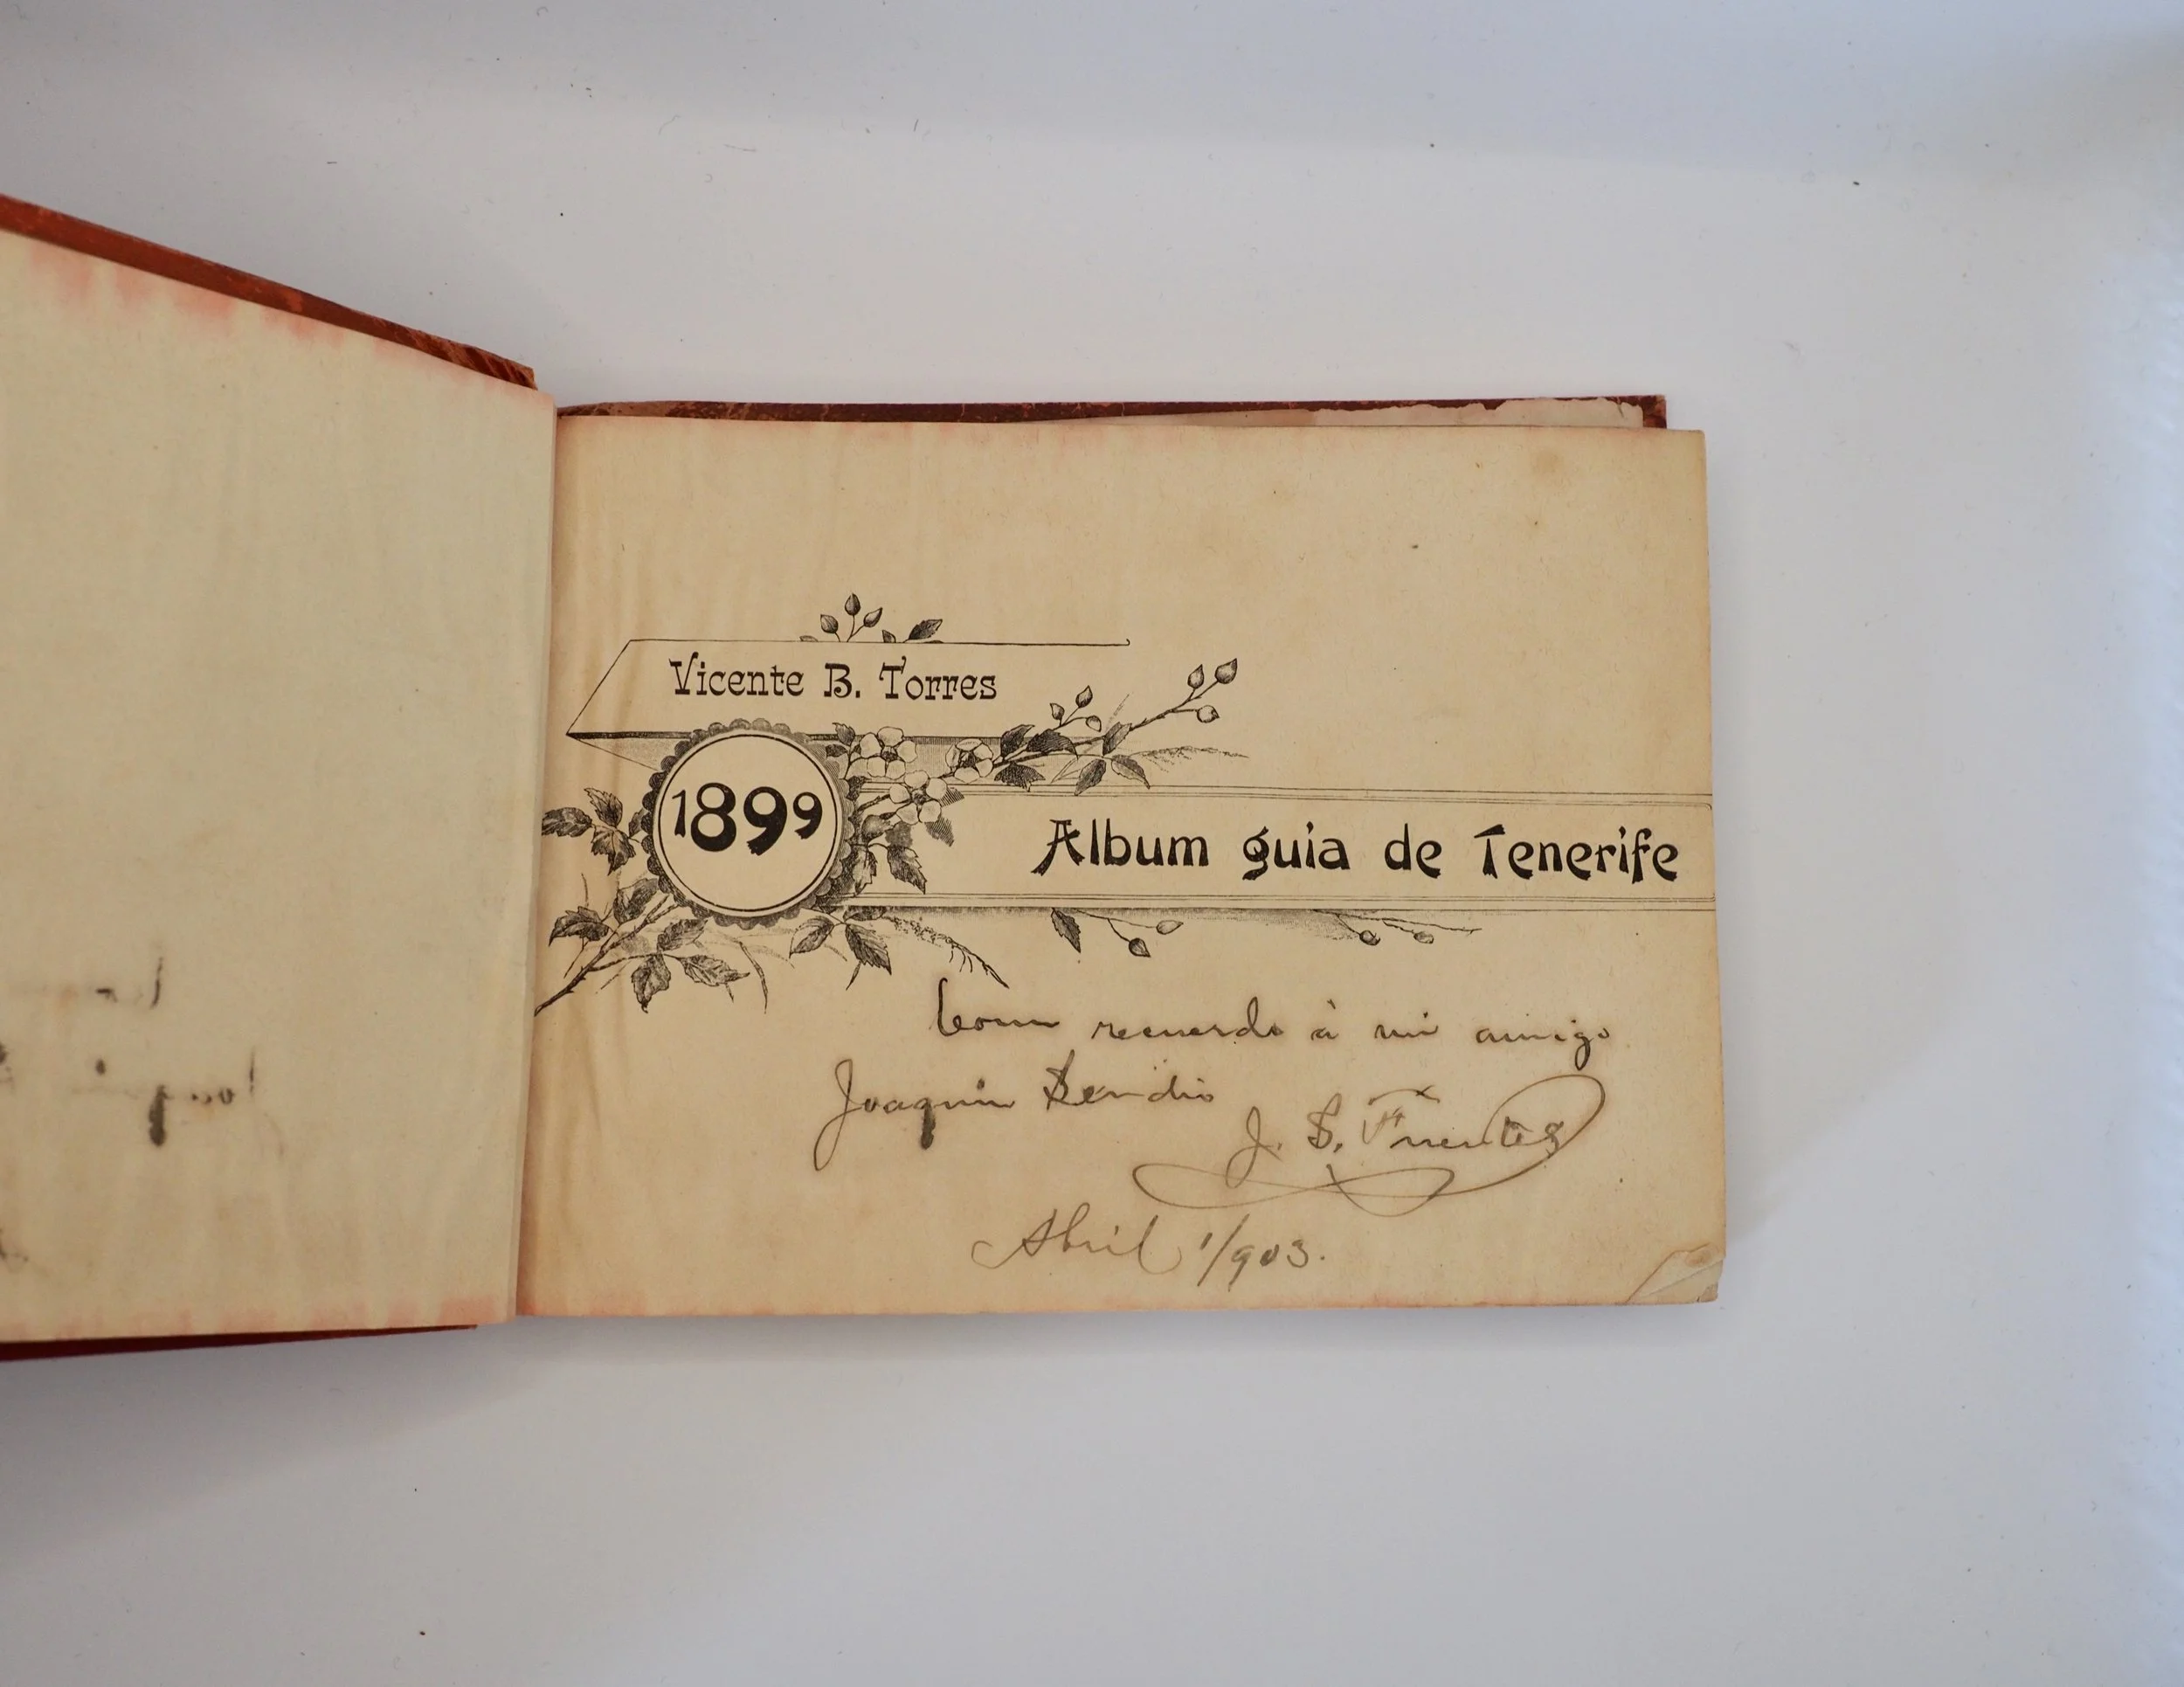 Vicente B. Torres
1899
Album guia de Tenerife
Como recuerdo à mi amigo
Joaquin
J. S. Fuentes
Abril 1/903.